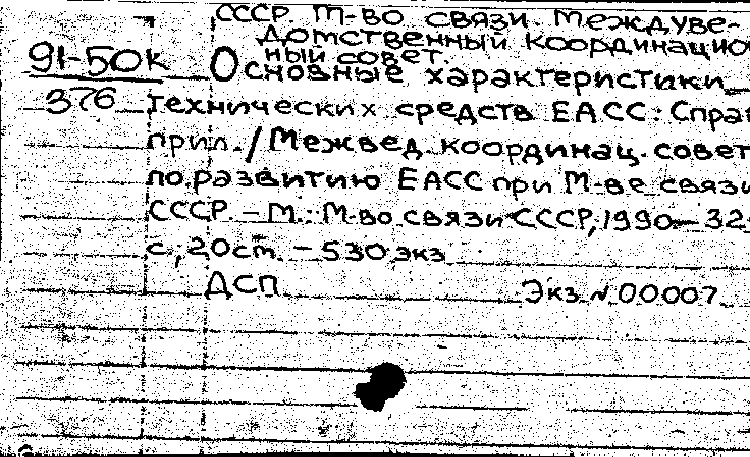 СССР. М-во связи. Междуве-
домственный координацио
ный совет.
91-50к Основные характеристики
376 технических средств ЕАСС: Спра
прил. / Межвед. координац. совет
по развитию ЕАСС при М-ве связи
СССР. - М.: М-во связи СССР, 1990 - 32
с, 20см. - 530 экз
ДСП Экз N 00007